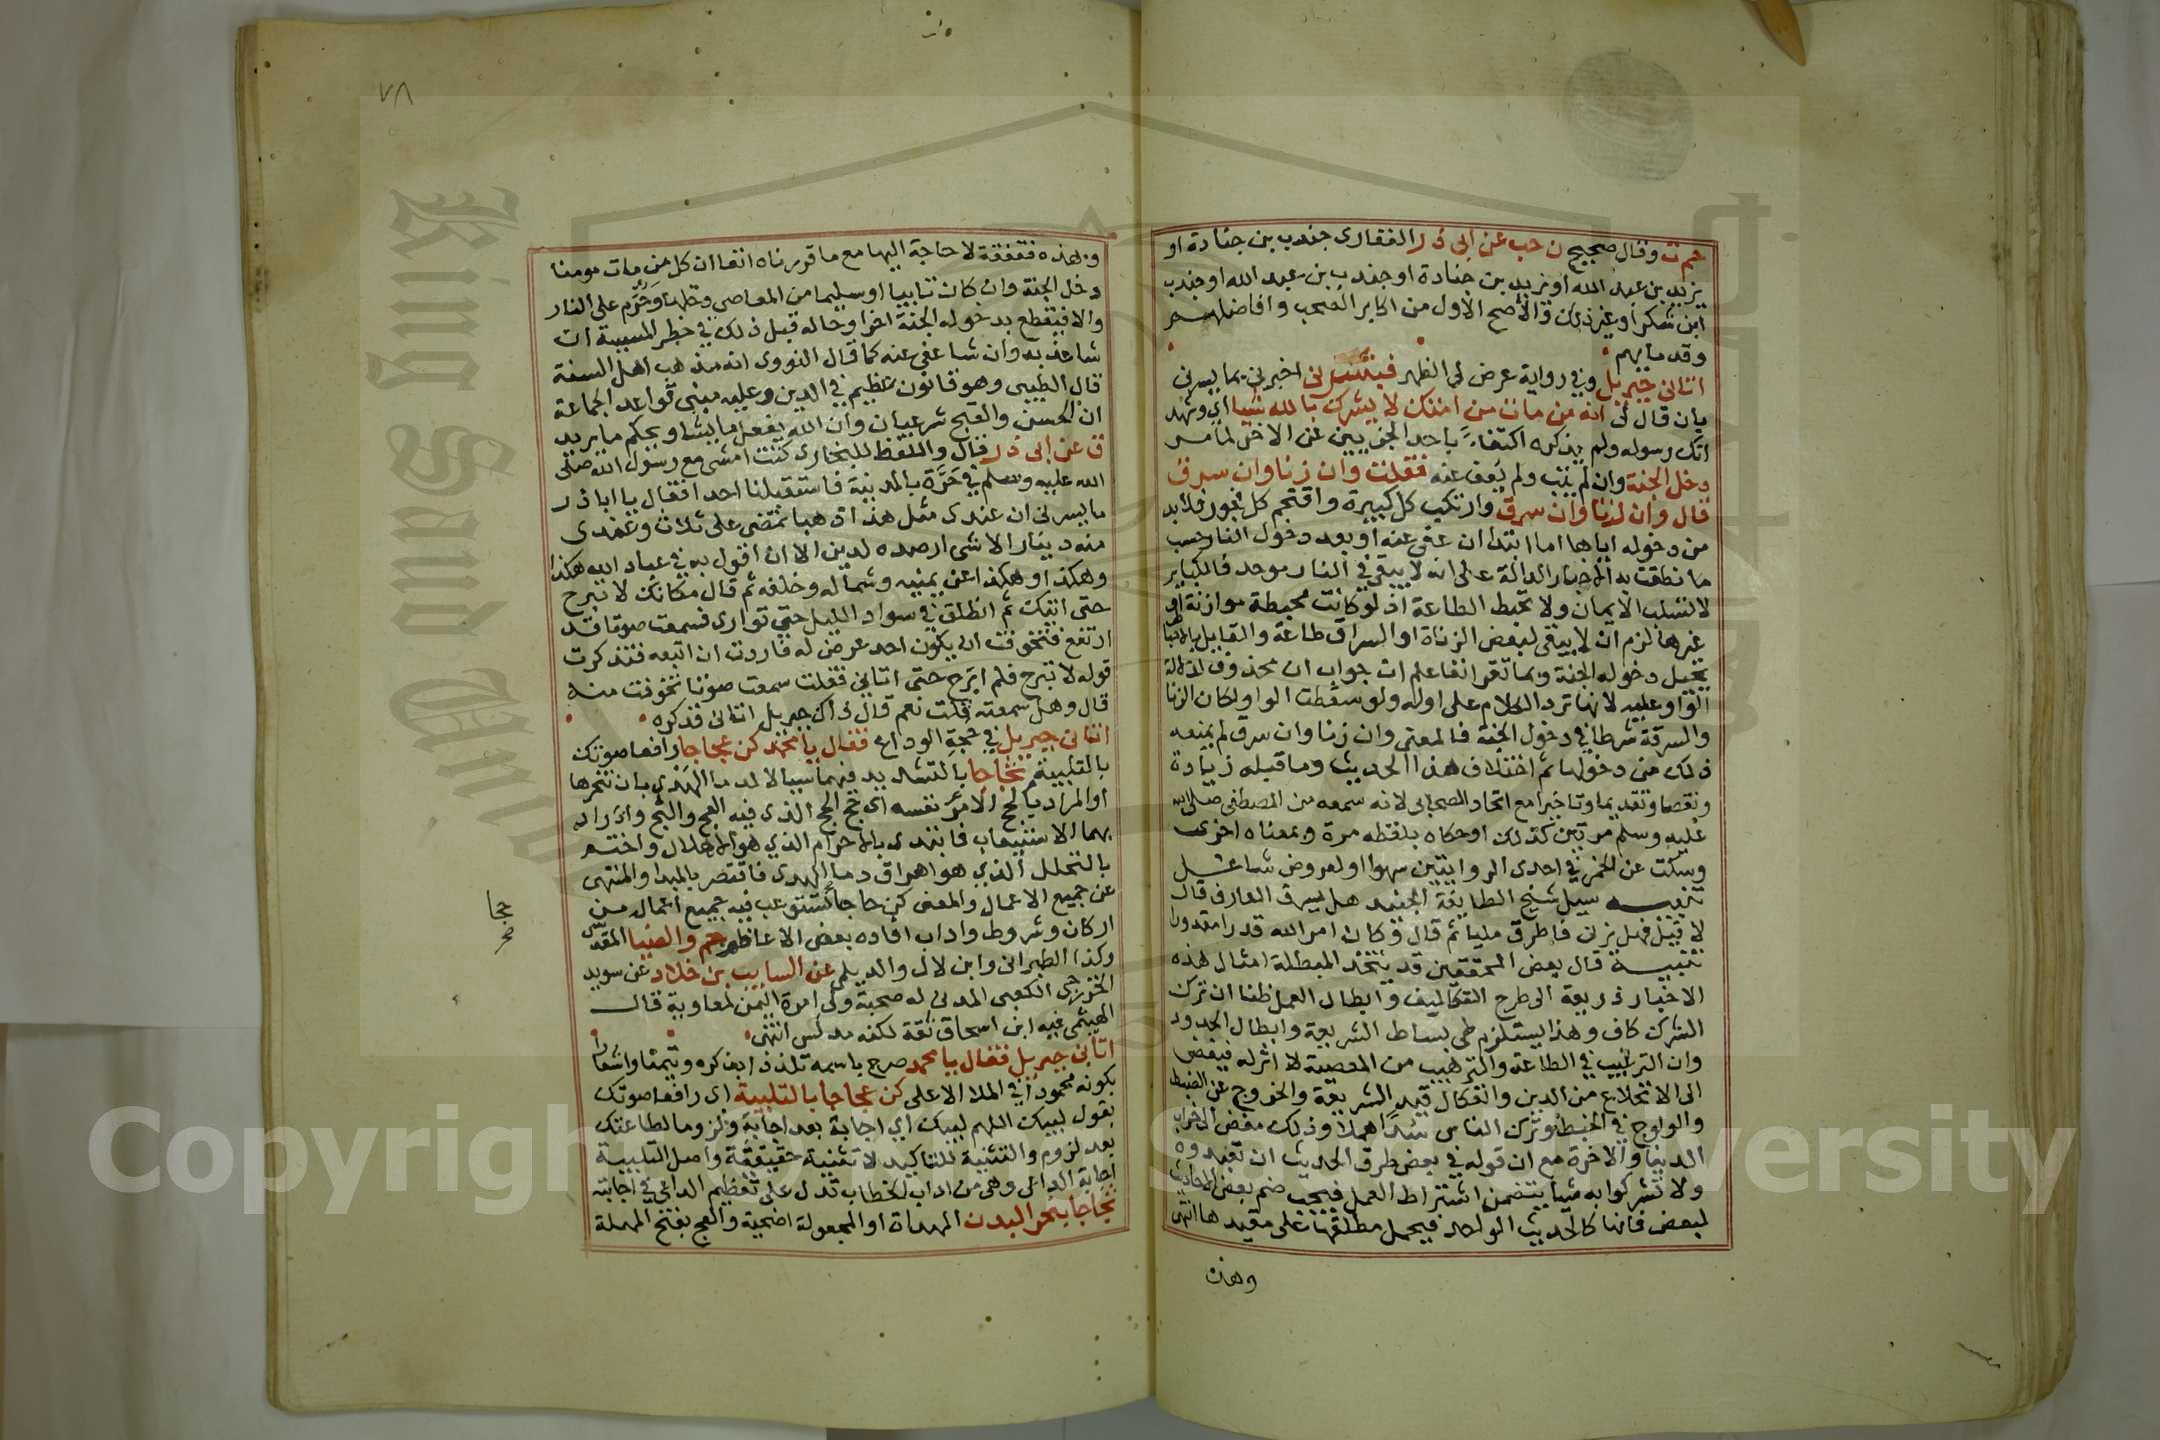 حم ت وقال صحيح ن حب عن ابى ذر الغفارى جندب بن جنادة او
يزيد بن عبد الله او يزيد بن جنادة او جندب بن عبد الله او جندب
ابن سكن او غير ذلك والاصح الاول من اكابر الصحب وافاضلهم
وقد ما يهم
اتانى جبريل وفي رواية عرض لي الظهر فبشرنى اخبرني بما يسرنى
بان قال لى انه من مات من امتك لا يشرك بالله شيا اي وشهد
انك رسوله ولم يذكره اكتفاء باحد الجزيين عن الاخر لما مر
دخل الجنة وان لم يتب ولم يعف عنه فقلت وان زنا وان سرق
قال وان زنا وان سرق وارتكب كل كبيرة واقتحم كل فجور فلا بد
من دخوله اياها اما ابتدا ان عفى عنه او بعد دخول النار حسب
ما نطقت به الاخبار الدالة على انه لا يبقى في النار موحد فالكباير
لا تسلب الايمان ولا تحبط الطاعة اذ لو كانت محبطة موازنة او
غيرها لزم ان لا يبقى لبعض الزناة او السراق طاعة والقايل بالاحباط
يحيل دخوله الجنة وبما تقرر انفا علم ان جواب ان محذوف لدلالة
الواو عليه لانها ترد الكلام على اوله ولو سقطت الواو لكان الزنا
والسرقة شرطا في دخول الجنة فالمعنى وان زنا وان سرق لم يمنعه
ذلك من دخولها ثم اختلاف هذا الحديث وما قبله زيادة
ونقصا وتقديما وتاخيرا مع اتحاد الصحابى لانه سمعه من المصطفى صلى الله
عليه وسلم مرتين كذلك او حكاه بلفظه مرة وبمعناه اخرى
وسكت عن الخمر في احدى الروايتين سهوا او لعروض شاغل
تنبيه سيل شيخ الطايفة الجنيد هل يسرق العارف قال
لا قيل فهل يزنى فاطرق مليا ثم قال وكان امر الله قدرا مقدورا
تنبيه قال بعض المحققين قد يتخذ المبطلة امثال هذه
الاخبار ذريعة الى طرح التكاليف وابطال العمل ظنا ان ترك
الشرك كاف وهذا يستلزم طى بساط الشريعة وابطال الحدود
وان الترغيب في الطاعة والترهيب من المعصية لا اثر له فيفضى
الى الانخلاع من الدين وانفكاك قيد الشريعة والخروج عن الضبط
والولوج في الخبط وترك الناس سدا هملا وذلك مفض الى خراب
الدنيا والاخرة مع ان قوله في بعض طرق الحديث ان تعبدوه
ولا تشركوا به شيا يتضمن اشتراط العمل فيجب ضم بعض الاحاديث
لبعض فانها كالحديث الواحد فيحمل مطلقها على مقيدها انتهى
وهذه
٧٨
وهذه فقفقة لا حاجة اليها مع ما قررناه انفا ان كل من مات مومنا
دخل الجنة وان كان تايبا او سليما من المعاصى دخلها وحرم على النار
والا فيقطع بدخوله الجنة اخرا وحاله قبل ذلك في خطر المشيية ان
شا عذبه وان شا عفى عنه كما قال النووى انه مذهب اهل السنة
قال الطيبى وهو قانون عظيم في الدين وعليه مبنى قواعد الجماعة
ان الحسن والقبح شرعيان وان الله يفعل ما يشا ويحكم ما يريد
ق عن ابى ذر قال واللفظ للبخارى كنت امشى مع رسول الله صلى
الله عليه وسلم في حرة بالمدينة فاستقبلنا احد افقال يا اباذر
ما يسرنى ان عندى مثل هذا ذهبا تمضى على ثلاث وعندى
منه دينار الا شى ارصده لدين الا ان اقول به في عباد الله هكذا
وهكذا وهكذا عن يمينه وشماله وخلفه ثم قال مكانك لا تبرح
حتى اتيك ثم انطلق في سواد الليل حتى توارى فسمعت صوتا قد
ارتفع فتخوفت ان يكون احد عرض له فاردت ان اتبعه فتذكرت
قوله لا تبرح فلم ابرح حتى اتانى فقلت سمعت صوتا تخوفت منه
قال وهل سمعته قلت نعم قال ذاك جبريل اتانى فذكره
اتانى جبريل في حجة الوداع فقال يا محمد كن عجاجا رافعا صوتك
بالتلبية ثجاجا بالتشديد فيهما سيالا لدما الهدى بان تنحرها
او المراد بالحج الامر نفسه اي حج الحج الذى فيه العج والثج واراد
بهما الاستيعاب فابتدى بالاحرام الذي هو الاهلال واختتم
بالتحلل الذي هو اهراق دما الهدى فاقتصر بالمبدا والمنتهى
عن جميع الاعمال والمعنى كن حاجا تستوعب فيه جميع اعماله من
اركان وشروط واداب افاده بعض الاعاظم حم والضيا المقدسى
وكذا الطبرانى وابن لال والديلمى عن السايب بن خلاد عن سويد
الخزرجى الكعبى المدنى له صحبة ولى امرة اليمن لمعاوية قال
الهيثمى فيه ابن اسحاق ثقة لكنه مدلس انتهى
اتانى جبريل فقال يا محمد صرح باسمه تلذذا بذكره وتيمنا واشعارا
بكونه محمودا في الملا الاعلى كن عجاجا بالتلبية اى رافعا صوتك
بقول لبيك اللهم لبيك اي اجابة بعد اجابة ولزوما لطاعتك
بعد لزوم والتثنية للتاكيد لا تثنية حقيقة واصل التلبية
اجابة الداعى وهى من اداب الخطاب تدل على تعظيم الداعى في اجابته
ثجاجا بنحر البدن المهداة او المجعولة اضحية والعج بفتح المهملة
حجا
King Saud University
Copyright King Saud University